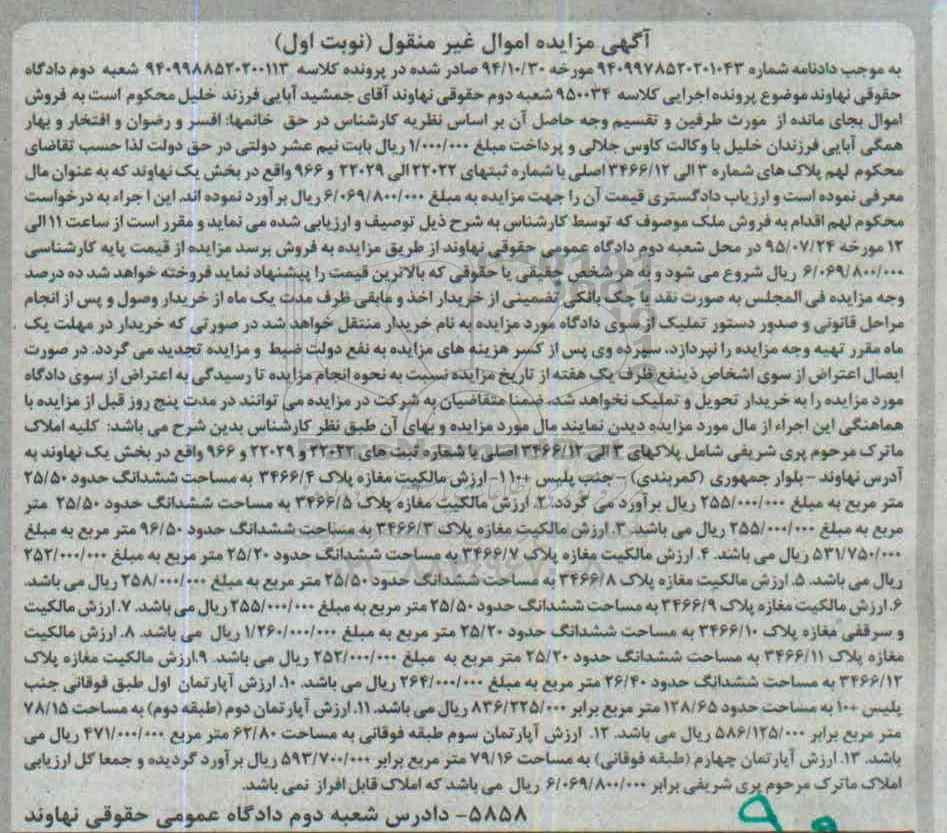 آگهی مزایده اموال غیر منقول (نوبت اول)
به موجب دادنامه شماره ۹۴۰۹۹۷۸۵۲۰۲۰۱۰۴۳ مورخه ۹۴/۱۰/۳۰ صادر شده در پرونده کلاسه ۹۴۰۹۹۸۸۵۲۰۲۰۰۱۱۳ شعبه دوم دادگاه
حقوقی نهاوند موضوع پرونده اجرایی کلاسه ۹۵۰۰۳۴ شعبه دوم حقوقی نهاوند آقای جمشید آبایی فرزند خلیل محکوم است به فروش
اموال بجای مانده از مورث طرفین و تقسیم وجه حاصل آن بر اساس نظریه کارشناس در حق خانمها: افسر و رضوان و افتخار و بهار
همگی آبایی فرزندان خلیل با وکالت کاوس جلالی و پرداخت مبلغ ۱/۰۰۰/۰۰۰ ریال بابت نیم عشر دولتی در حق دولت لذا حسب تقاضای
محکوم لهم پلاک های شماره ۳ الی ۳۴۶۶/۱۲ اصلی با شماره ثبتهای ۲۲۰۲۲ الی ۲۲۰۲۹ و ۹۶۶ واقع در بخش یک نهاوند که به عنوان مال
معرفی نموده است و ارزیاب دادگستری قیمت آن را جهت مزایده به مبلغ ۶/۰۶۹/۸۰۰/۰۰۰ ریال بر آورد نموده اند. این ا جراء به درخواست
محکوم لهم اقدام به فروش ملک موصوف که توسط کارشناس به شرح ذیل توصیف و ارزیابی شده می نماید و مقرر است از ساعت ۱۱ الی
۱۲ مورخه ۹۵/۰۷/۲۴ در محل شعبه دوم دادگاه عمومی حقوقی نهاوند از طریق مزایده به فروش برسد مزایده از قیمت پایه کارشناسی
۶/۰۶۹/۸۰۰/۰۰۰ ریال شروع می شود و به هر شخص حقیقی یا حقوقی که بالاترین قیمت را پیشنهاد نماید فروخته خواهد شد ده درصد
وجه مزایده فی المجلس به صورت نقد یا چک بانکی تضمینی از خریدار اخذ و مابقی ظرف مدت یک ماه از خریدار وصول و پس از انجام
مراحل قانونی و صدور دستور تملیک از سوی دادگاه مورد مزایده به نام خریدار منتقل خواهد شد در صورتی که خریدار در مهلت یک
ماه مقرر تهیه وجه مزایده را نپردازد، سپرده وی پس از کسر هزینه های مزایده به نفع دولت ضبط و مزایده تجدید می گردد. در صورت
ایصال اعتراض از سوی اشخاص ذینفع ظرف یک هفته از تاریخ مزایده نسبت به نحوه انجام مزایده تا رسیدگی به اعتراض از سوی دادگاه
مورد مزایده را به خریدار تحویل و تملیک نخواهد شد، ضمنا متقاضیان به شرکت در مزایده می توانند در مدت پنج روز قبل از مزایده با
هماهنگی این اجراء از مال مورد مزایده دیدن نمایند مال مورد مزایده و بهای آن طبق نظر کارشناس بدین شرح می باشد: کلیه املاک
ماترک مرحوم پری شریفی شامل پلاکهای ۳ الی ۳۴۶۶/۱۲ اصلی با شماره ثبت های ۲۲۰۲۲ و ۲۲۰۲۹ و ۹۶۶ واقع در بخش یک نهاوند به
آدرس نهاوند – بلوار جمهوری (کمربندی) – جنب پلیس +۱۰ ۱- ارزش مالکیت مغازه پلاک ۳۴۶۶/۴ به مساحت ششدانگ حدود ۲۵/۵۰
متر مربع به مبلغ ۲۵۵/۰۰۰/۰۰۰ ریال برآورد می گردد. ۲. ارزش مالکیت مغازه پلاک ۳۴۶۶/۵ به مساحت ششدانگ حدود ۲۵/۵۰ متر
مربع به مبلغ ۲۵۵/۰۰۰/۰۰۰ ریال می باشد. ۳. ارزش مالکیت مغازه پلاک ۳۴۶۶/۳ به مساحت ششدانگ حدود ۹۶/۵۰ متر مربع به مبلغ
۵۳۱/۷۵۰/۰۰۰ ریال می باشد. ۴. ارزش مالکیت مغازه پلاک ۳۴۶۶/۷ به مساحت ششدانگ حدود ۲۵/۲۰ متر مربع به مبلغ ۲۵۲/۰۰۰/۰۰۰
ریال می باشد. ۵. ارزش مالکیت مغازه پلاک ۳۴۶۶/۸ به مساحت ششدانگ حدود ۲۵/۵۰ متر مربع به مبلغ ۲۵۸/۰۰۰/۰۰۰ ریال می باشد.
۶. ارزش مالکیت مغازه پلاک ۳۴۶۶/۹ به مساحت ششدانگ حدود ۲۵/۵۰ متر مربع به مبلغ ۲۵۵/۰۰۰/۰۰۰ ریال می باشد. ۷. ارزش مالکیت
و سرقفی مغازه پلاک ۳۴۶۶/۱۰ به مساحت ششدانگ حدود ۲۵/۲۰ متر مربع به مبلغ ۱/۲۶۰/۰۰۰/۰۰۰ ریال می باشد. ۸. ارزش مالکیت
مغازه پلاک ۳۴۶۶/۱۱ به مساحت ششدانگ حدود ۲۵/۲۰ متر مربع به مبلغ ۲۵۲/۰۰۰/۰۰۰ ریال می باشد. ۹.ارزش مالکیت مغازه پلاک
۳۴۶۶/۱۲ به مساحت ششدانگ حدود ۲۶/۴۰ متر مربع به مبلغ ۲۶۴/۰۰۰/۰۰۰ ریال می باشد. ۱۰. ارزش آپارتمان اول طبق فوقانی جنب
پلیس +۱۰ به مساحت حدود ۱۲۸/۶۵ متر مربع برابر ۸۳۶/۲۲۵/۰۰۰ ریال می باشد. ۱۱. ارزش آپارتمان دوم (طبقه دوم) به مساحت ۷۸/۱۵
متر مربع برابر ۵۸۶/۱۲۵/۰۰۰ ریال می باشد. ۱۲. ارزش آپارتمان سوم طبقه فوقانی به مساحت ۶۲/۸۰ متر مربع ۴۷۱/۰۰۰/۰۰۰ ریال می
باشد. ۱۳. ارزش آپارتمان چهارم (طبقه فوقانی) به مساحت ۷۹/۱۶ متر مربع برابر ۵۹۳/۷۰۰/۰۰۰ ریال برآورد گردیده و جمعا کل ارزیابی
املاک ماترک مرحوم پری شریفی برابر ۶/۰۶۹/۸۰۰/۰۰۰ ریال می باشد که املاک قابل افراز نمی باشد.
۵۸۵۸- دادرس شعبه دوم دادگاه عمومی حقوقی نهاوند